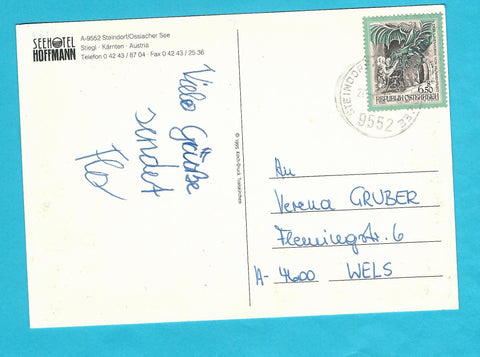 SEEHOTEL
HOFFMANN
A-9552 Steindorf/Ossiacher See
Stiegl · Kärnten · Austria
Telefon 0 42 43 / 87 04 · Fax 0 42 43 / 25 36
Viele Grüße
sendet
REPUBLIK ÖSTERREICH
6.50
STEINDORF
9552
An
Verena GRUBER
Flemingstr. 6
A- 4600 WELS